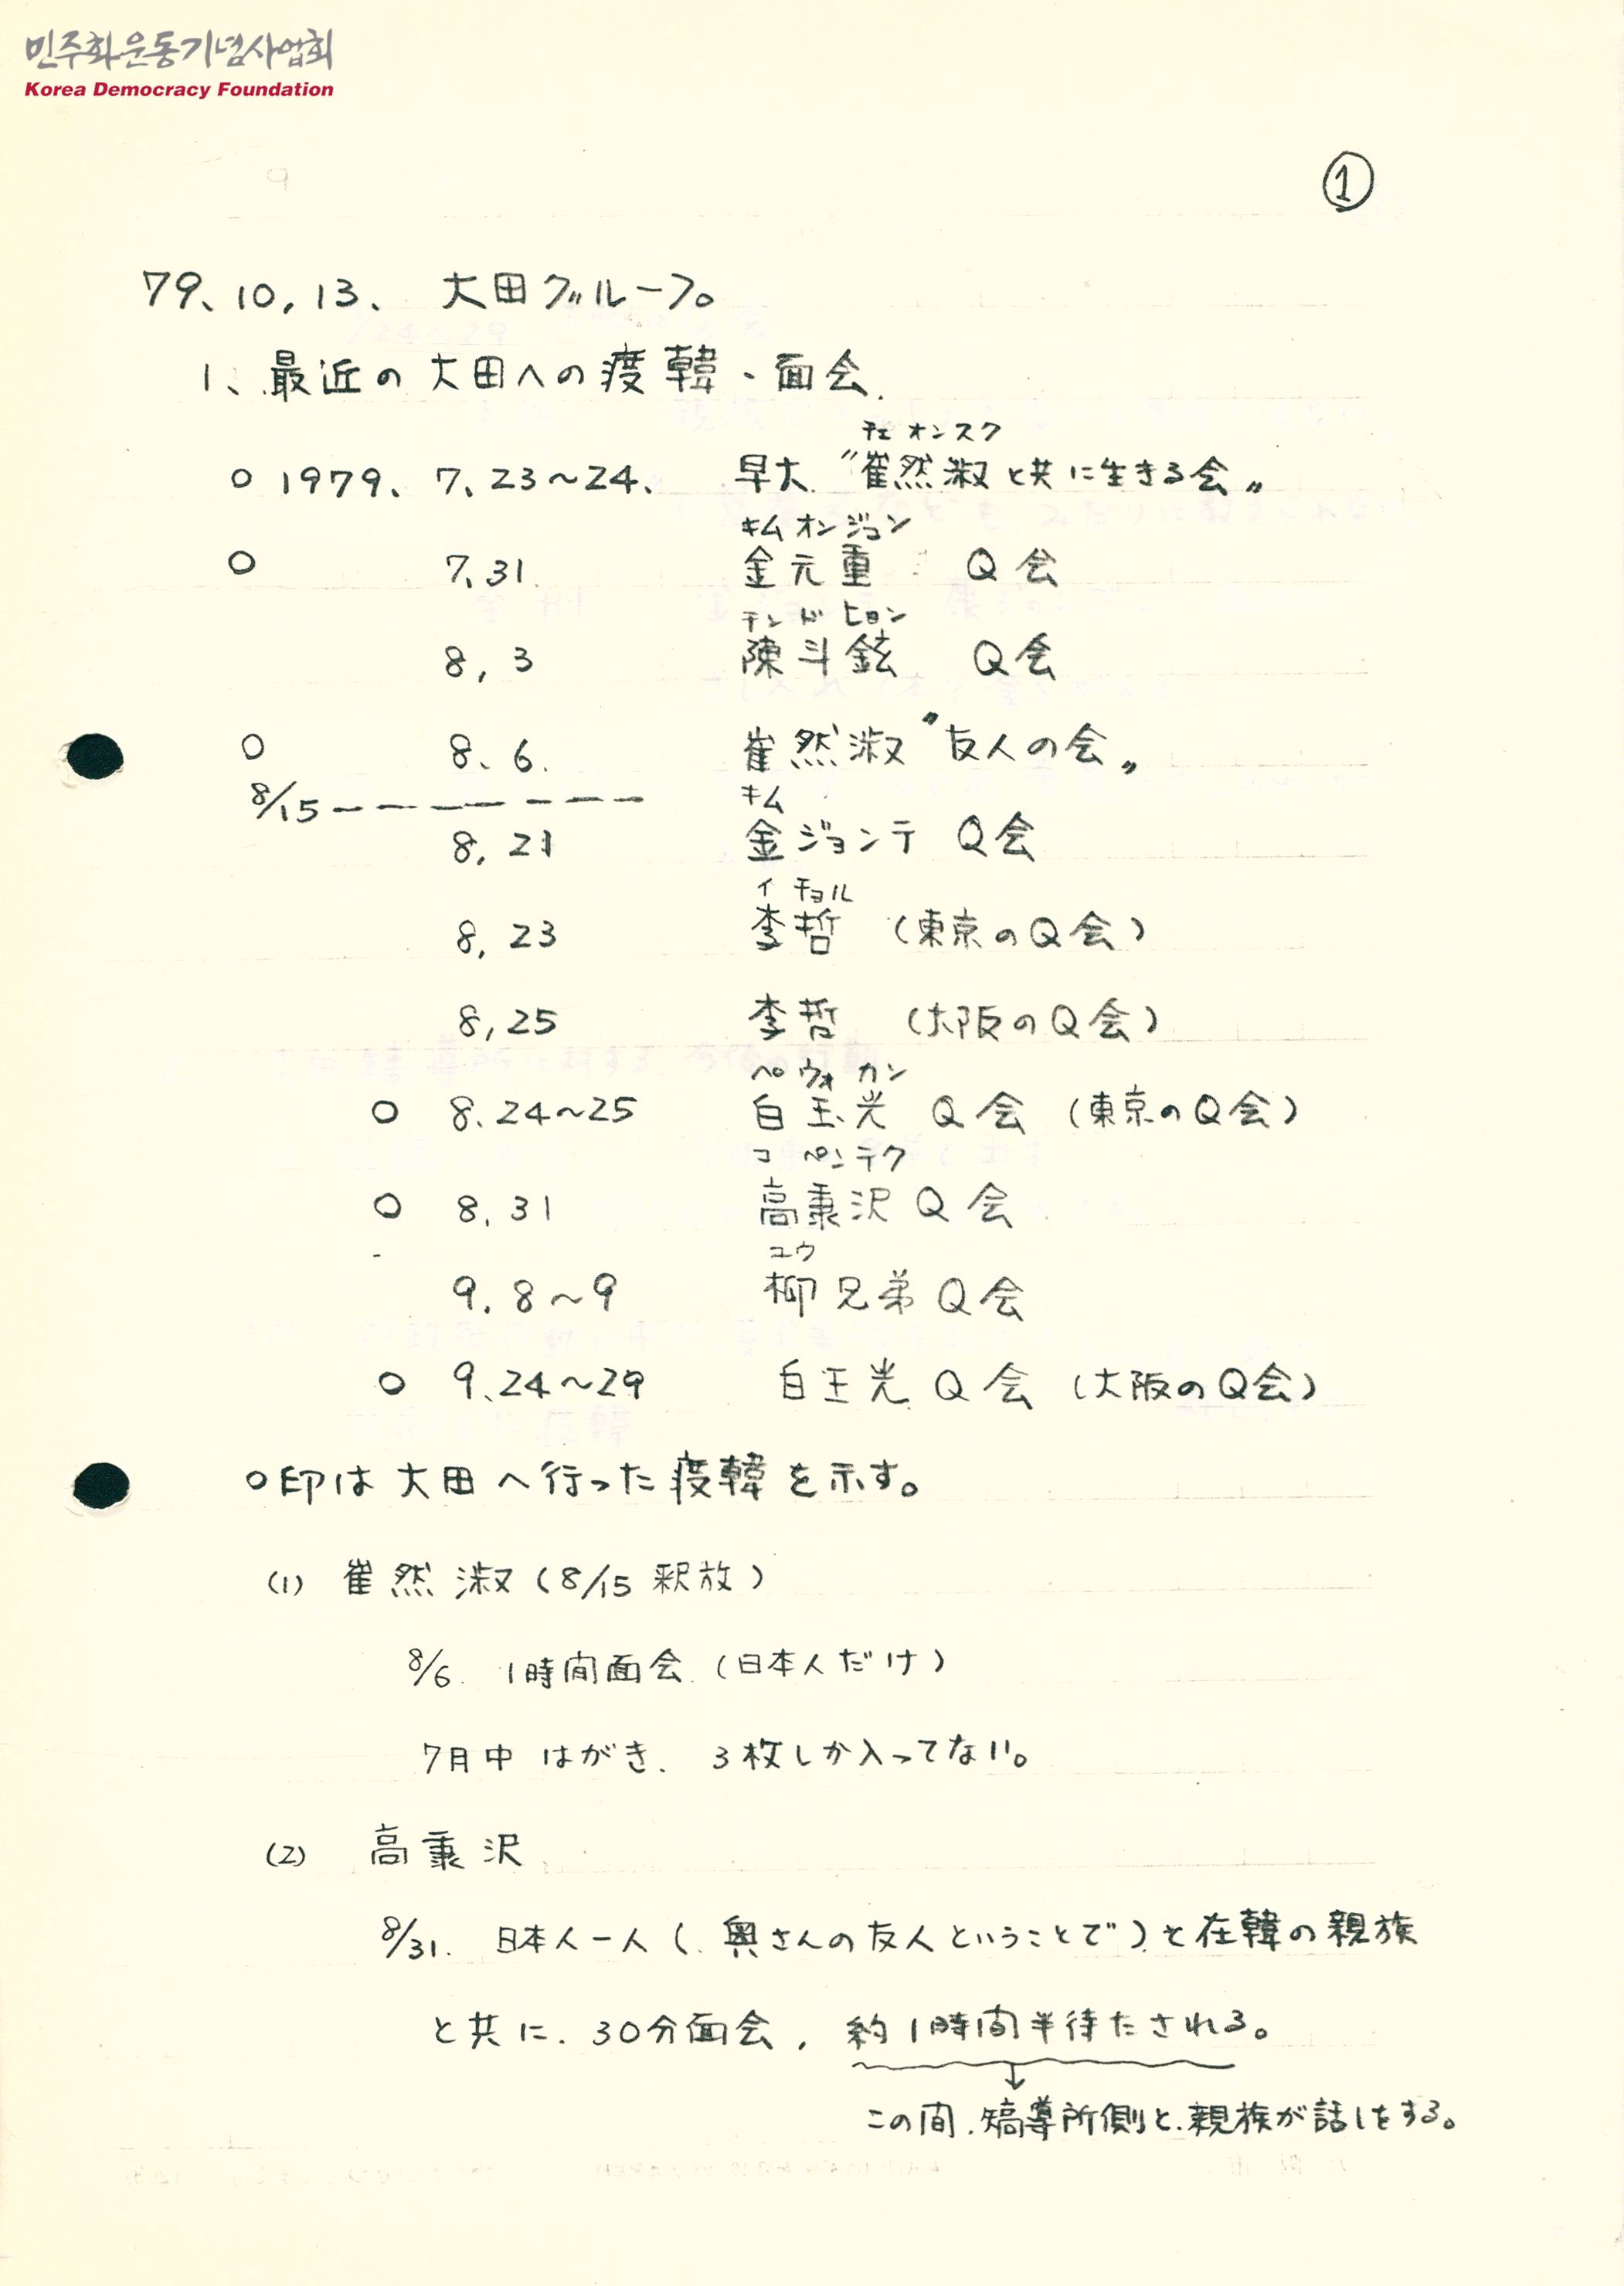 민주화운동기념사업회
Korea Democracy Foundation
①
79、10,13、 大田グループ
1、最近の大田への渡韓・面会.
チェ オンスク
○ 1979、7、23〜24、 早大 "崔然淑と共に生きる会"
キム オン ジョン
○ 7、31 金元重 Q会
チン ド ヒョン
8, 3 陳斗鉉 Q会
○ 8、6. 崔然淑 "友人の会"
8/15 ― ― ― ― ― ― ―
キム
8, 21 金ジョンテ Q会
イ チョル
8, 23 李哲 (東京のQ会)
8,25 李哲 (大阪のQ会)
ペ ウォ カン
○ 8、24〜25 白玉光 Q会 (東京のQ会)
コ ペンテク
○ 8、31 高秉沢 Q会
ユウ
9、8〜9 柳兄弟 Q会
○ 9、24〜29 白玉光 Q会 (大阪のQ会)
○印は大田へ行った渡韓を示す。
(1) 崔然淑 (8/15 釈放)
8/6. 1時間面会 (日本人だけ)
7月中 はがき、3枚しか入ってない。
(2) 高秉沢
8/31. 日本人一人 (奥さんの友人ということで) と在韓の親族
と共に、30分面会, 約1時間半待たされる。
↓
この間、矯導所側と、親族が話しをする。